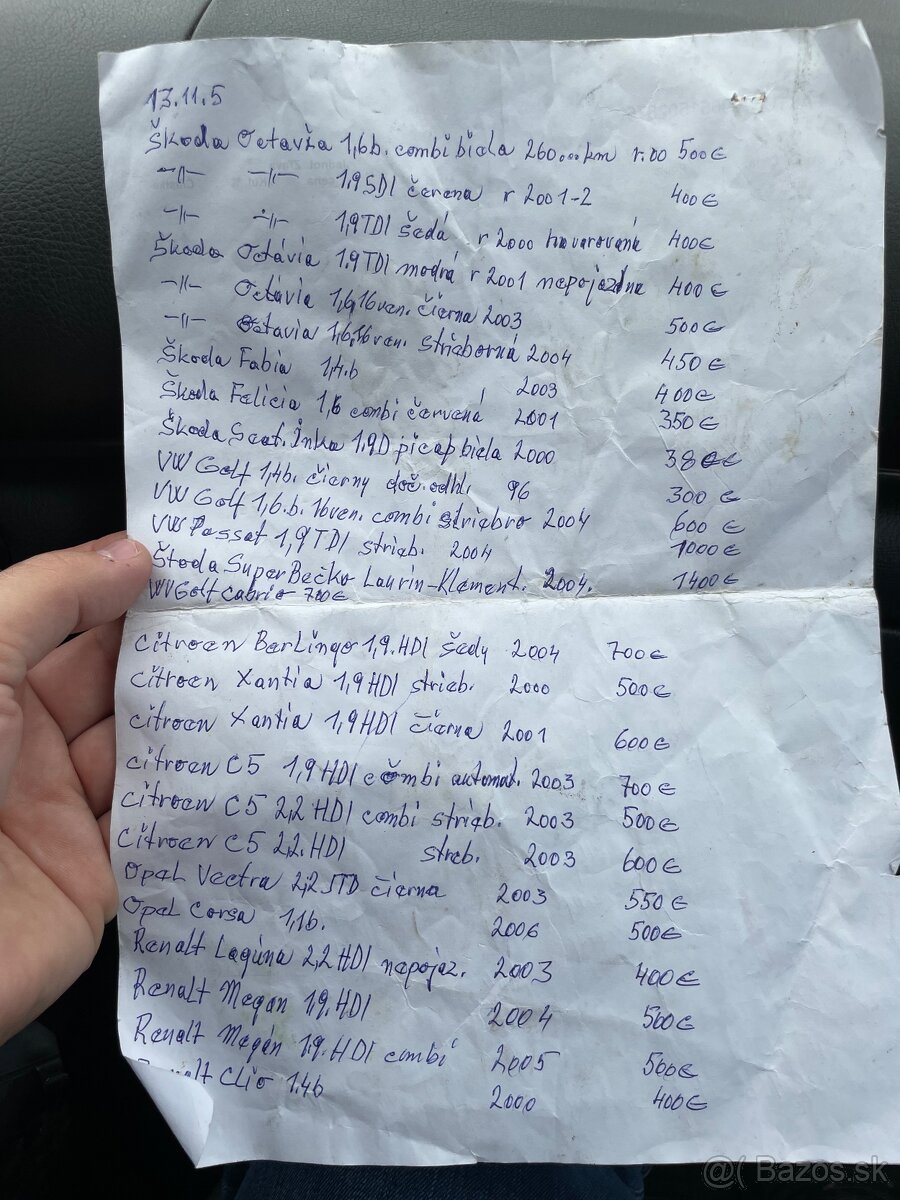 13.11.5
Škoda Octavža 1,6b. combi biela 260...km r.00 500€
-||- -||- 1,9SDI čerena r 2001-2 400€
-||- -||- 1,9TDI šedá r 2000 havarovaná 400€
Škoda Octávia 1.9TDI modrá r 2001 nepojazdna 400€
-||- Octávia 1,6,16ven. čierna 2003 500€
-||- Octavia 1,6,16ven. strieborná 2004 450€
Škoda Fabia 1,4.b 2003 400€
Škoda Felicia 1,6 combi červená 2001 350€
Škoda Seat. Inka 1.9D picap biela 2000 380€
VW Golf 1,4b. čierny doč.odhl. 96 300€
VW Golf 1,6.b. 16ven. combi striebro 2004 600€
VW Passat 1,9TDI strieb. 2004 1000€
Štoda SuperBečko Laurin-Klement. 2004. 1400€
WVGolf cabrio 700€
Citroen BerLingo 1,9.HDI šedy 2004 700€
Citroen Xantia 1,9HDI strieb. 2000 500€
Citroen Xantia 1,9HDI čierna 2001 600€
Citroen C5 1,9HDI combi automat. 2003 700€
Citroen C5 2,2 HDI combi strieb. 2003 500€
Citroen C5 2,2.HDI streb. 2003 600€
Opel Vectra 2,2 JTD čierna 2003 550€
Opel Corsa 1,1b. 2006 500€
Renalt Lagúna 2,2HDI nepojaz. 2003 400€
Renalt Megan 1,9.HDI 2004 500€
Renalt Megán 1.9.HDI combí 2005 500€
lt Clio 1.4b 2000 400€
@( Bazos.sk